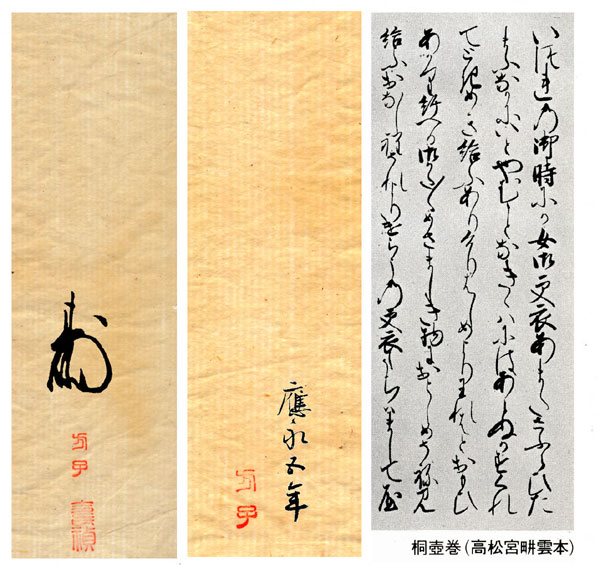 いつれの御時にか女御更衣あまたさふらひた
まふなかにいとやむことなきゝはにはあらぬかすくれ
てときめき給ふありけりはしめよりわれはとおもひ
あかり給へる御かた〳〵めさましき物におとしめそねみ
給ふおなし程それより下らうの更衣たちはましてや
應永五年
桐壺巻(高松宮畊雲本)